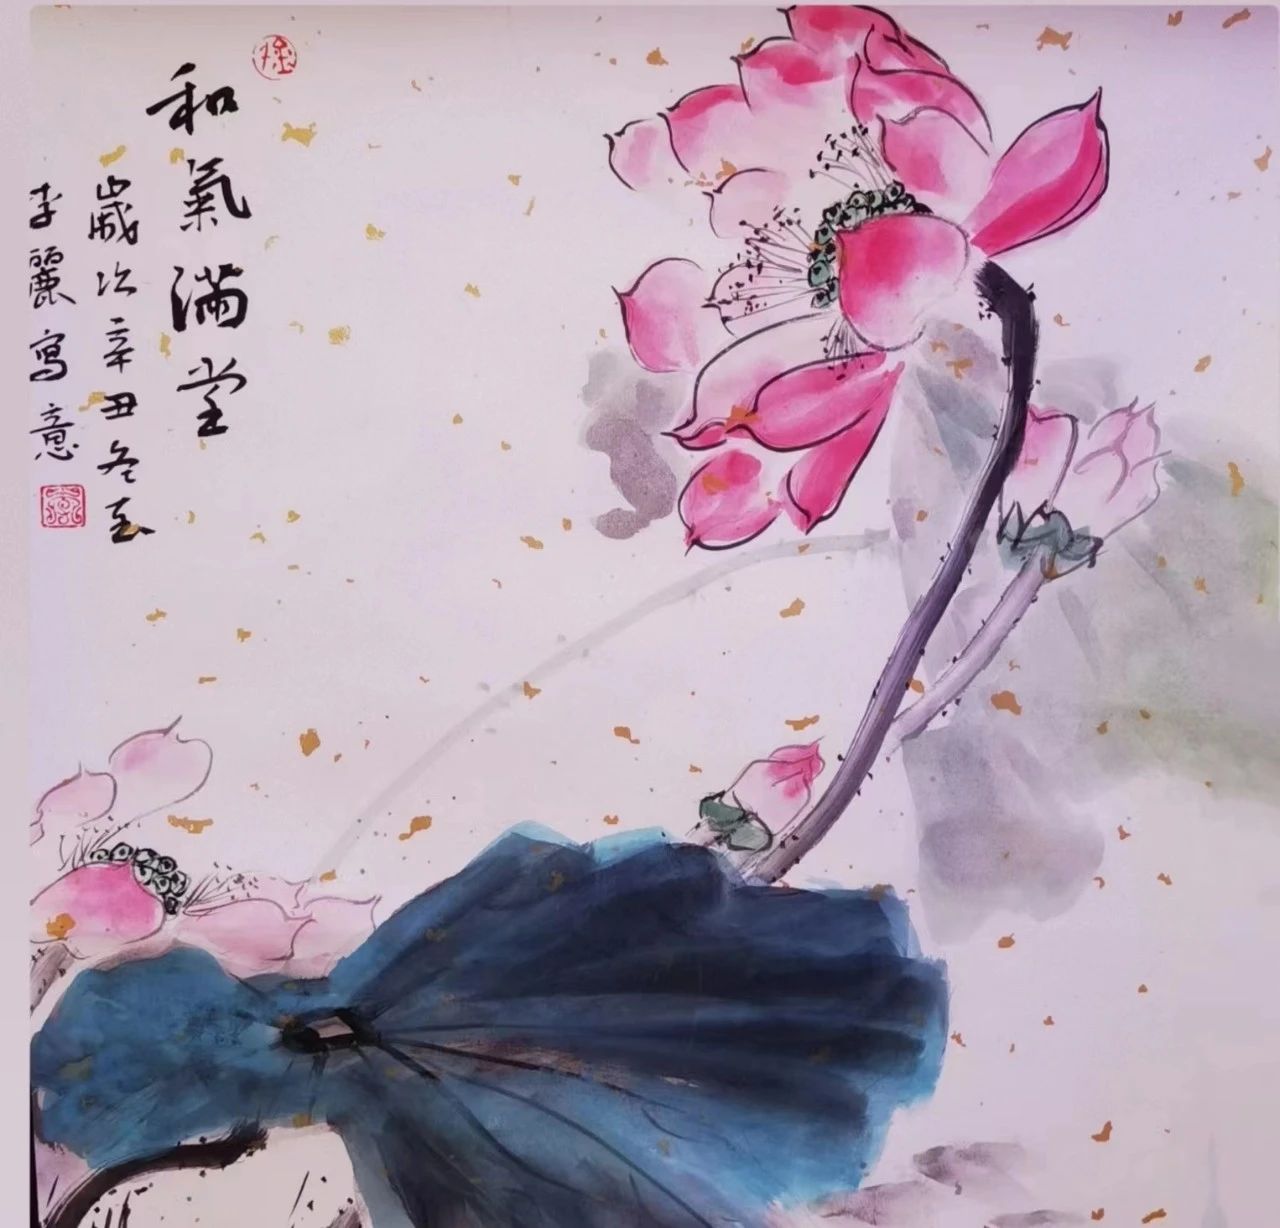 和氣滿堂
歲次辛丑冬至
李麗寫意